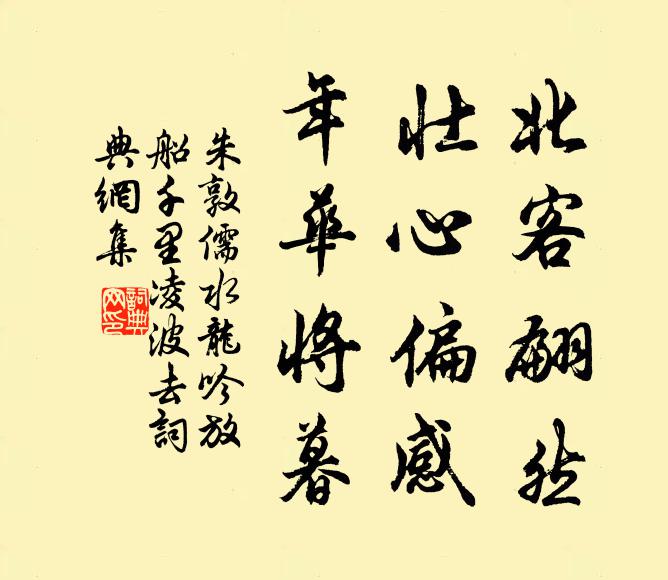 北客翩然
壮心偏感
年華將暮
朱敦儒水龍吟放
船千里凌波去詞
典網集
詞典
网印